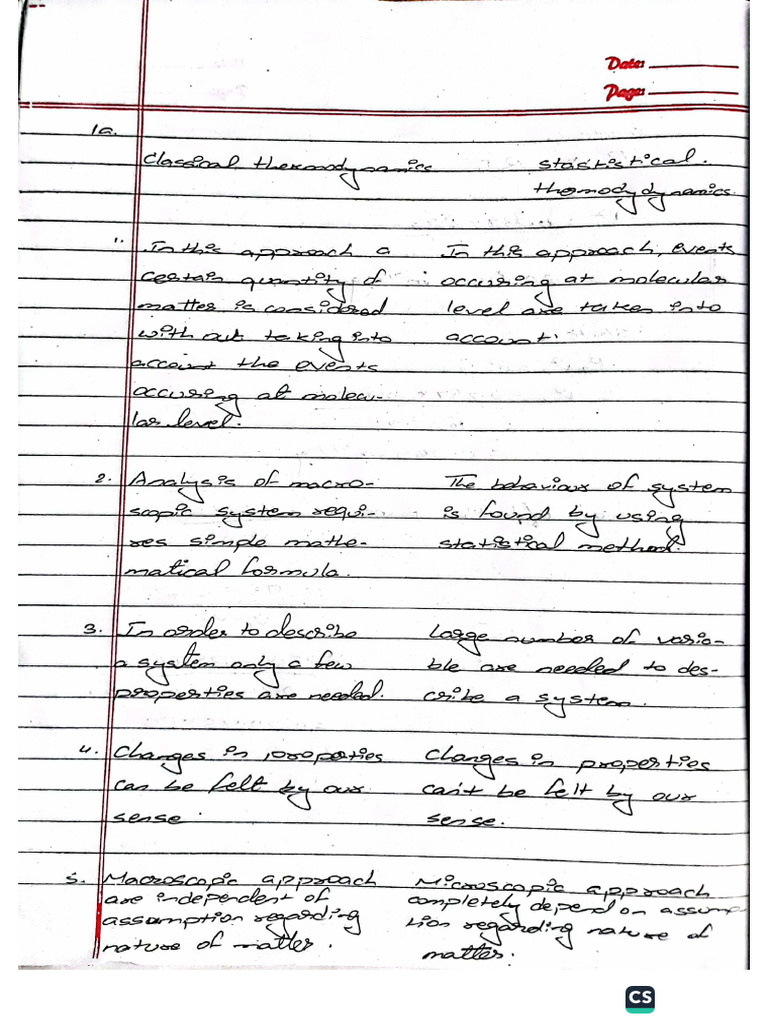 Date:
Page:
1a.
Classical thermodynamics statistical.
thomodydynamics.
1. In this approach a In this approach, events
certain quantity of occuring at molecular
matter is considered level are taken into
with out taking into account.
account the events
occuring at molecu-
lar level.
2. Analysis of macro- The behaviour of system
scopic system requi- is found by using
res simple mathe- statistical method.
matical formula.
3. In order to describe Large number of varia-
a system only a few ble are needed to des-
properties are needed. cribe a system.
4. Changes in properties Changes in properties
can be felt by our can't be felt by our
sense. sense.
5. Macroscopic approach Microscopic approach
are independent of completely depend on assump
assumption regarding tion regarding nature of
nature of matter. matter.
CS